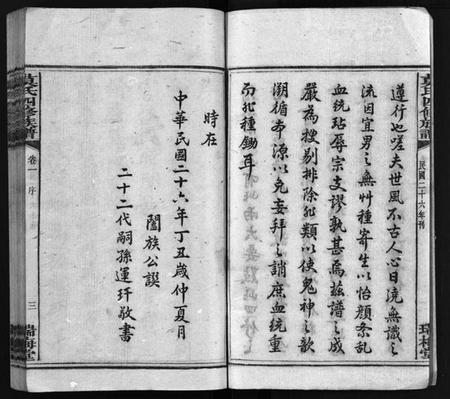 遵行也嗟夫世風不古人心日澆無識之
流因宜男之無艸種寄生以怡顏紊亂
血統玷辱宗支謬孰甚焉茲譜之成
嚴為搜剔排除非類以使鬼神之歆
溯循本源以免妄拜之誚庶血統重
而非種鋤耳
民國二十六年刊
時在
中華民國二十六年丁丑歲仲夏月
闔族公譔
二十二代嗣孫運玕敬書
氏四修族譜
卷一 序
三